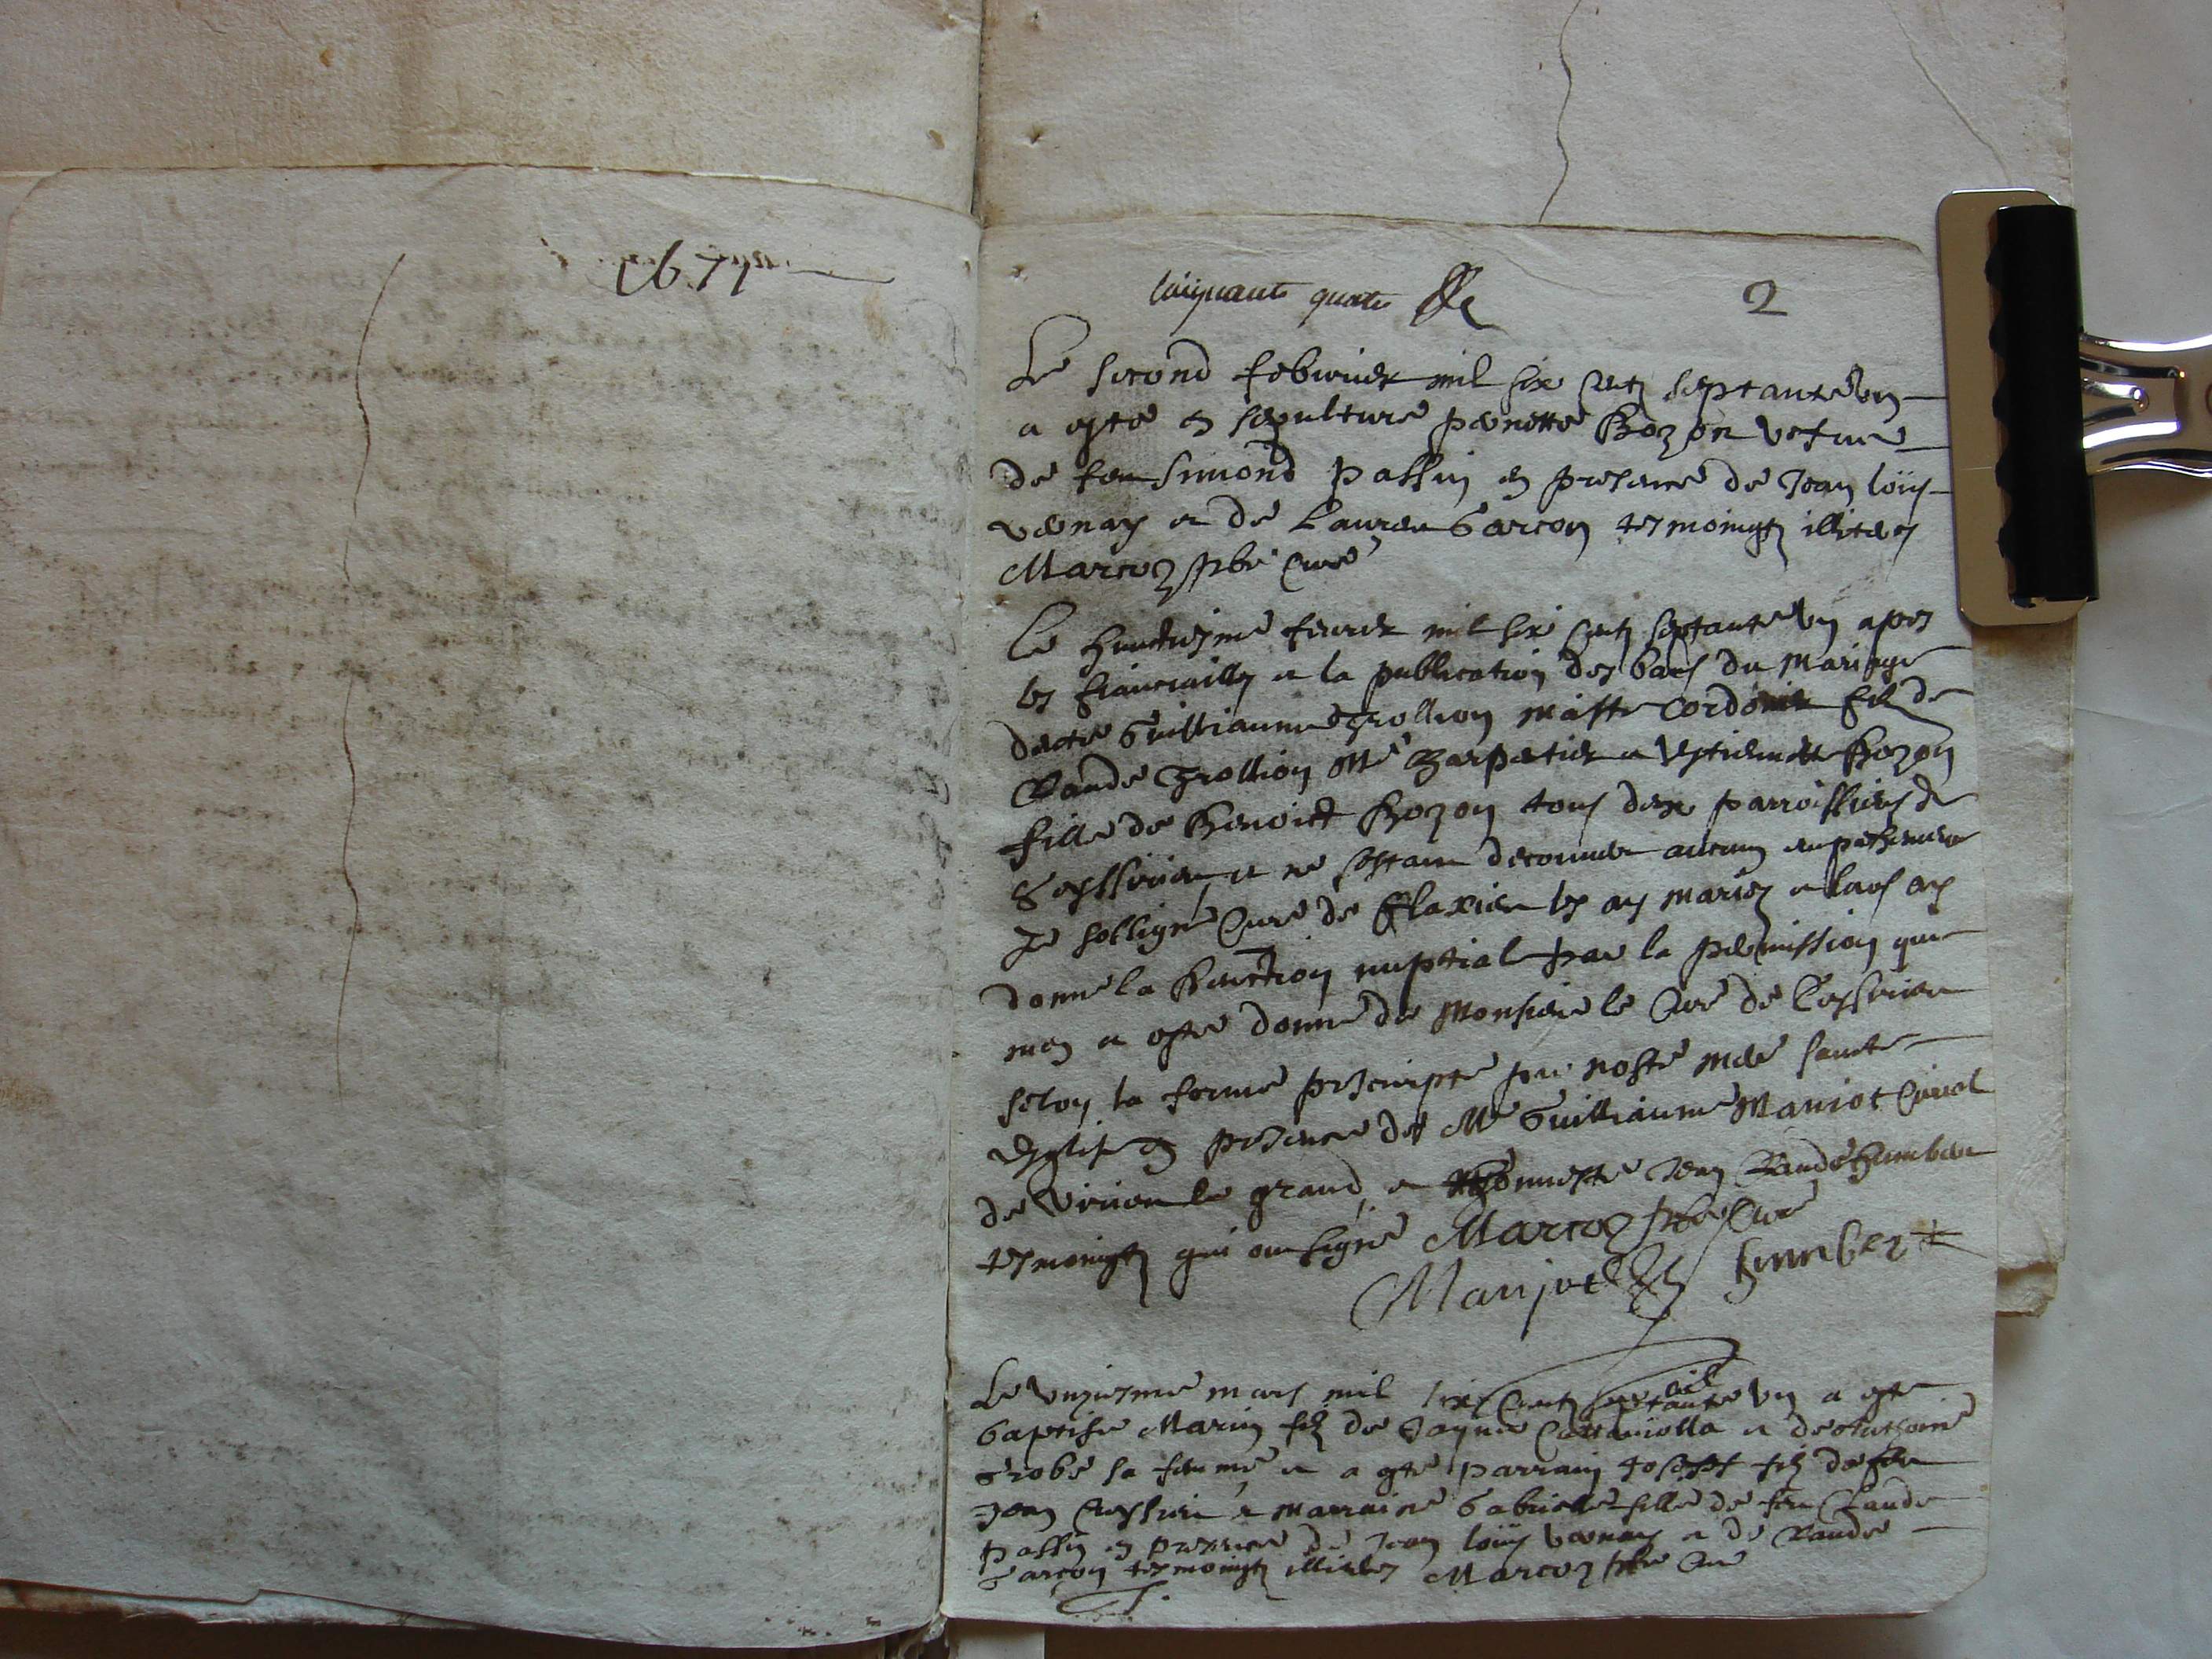 1671
cinquante quatre
2
Le second febvrier mil six centz septante un
a esté en sepulture pernette Bozon vefve
de feu Simond passin en presence de Jean loüys
vernay et de Lauren Garcon tesmoingtz illiteres
Marcoz pbre Curé
Le huictiesme fevrier mil six centz septante un apres
les fiancailles et la publication des bans du mariage
d'entre Guilliaume Trollion maistre cordonier filz de
Claude Trollion Me Charpentier et Estiennette Bozon
fille de Benoict Bozon tous deux parroissiens de
Ceysserieu et ne sestant decouvert aucun empechement
Je sobsigné Curé de Flaxieu les ay mariez et leurs ay
donné la benection nuptial par la permission qui
men a esté donné de Monsieur le Curé de Ceysserieu
selon la forme prescripte par nostre mere saincte
eglise en presence de Me Guilliaume Maniot
de Virieu le grand et honneste Jean Claude humbert
tesmoingtz qui ont signé Marcoz pbre Curé
Manjot humbert
Le unziesme mars mil six centz septante un a esté
baptisé Marin filz de Jayme et de Anthoine
Grobé sa femme et a esté parrain Joseph filz de feu
Jean et marraine Gabrielle fille de feu Claude
passin en presence de Jean loüys vernay et de Claude
Garçon tesmoingtz illiteres Marcoz pbre Curé